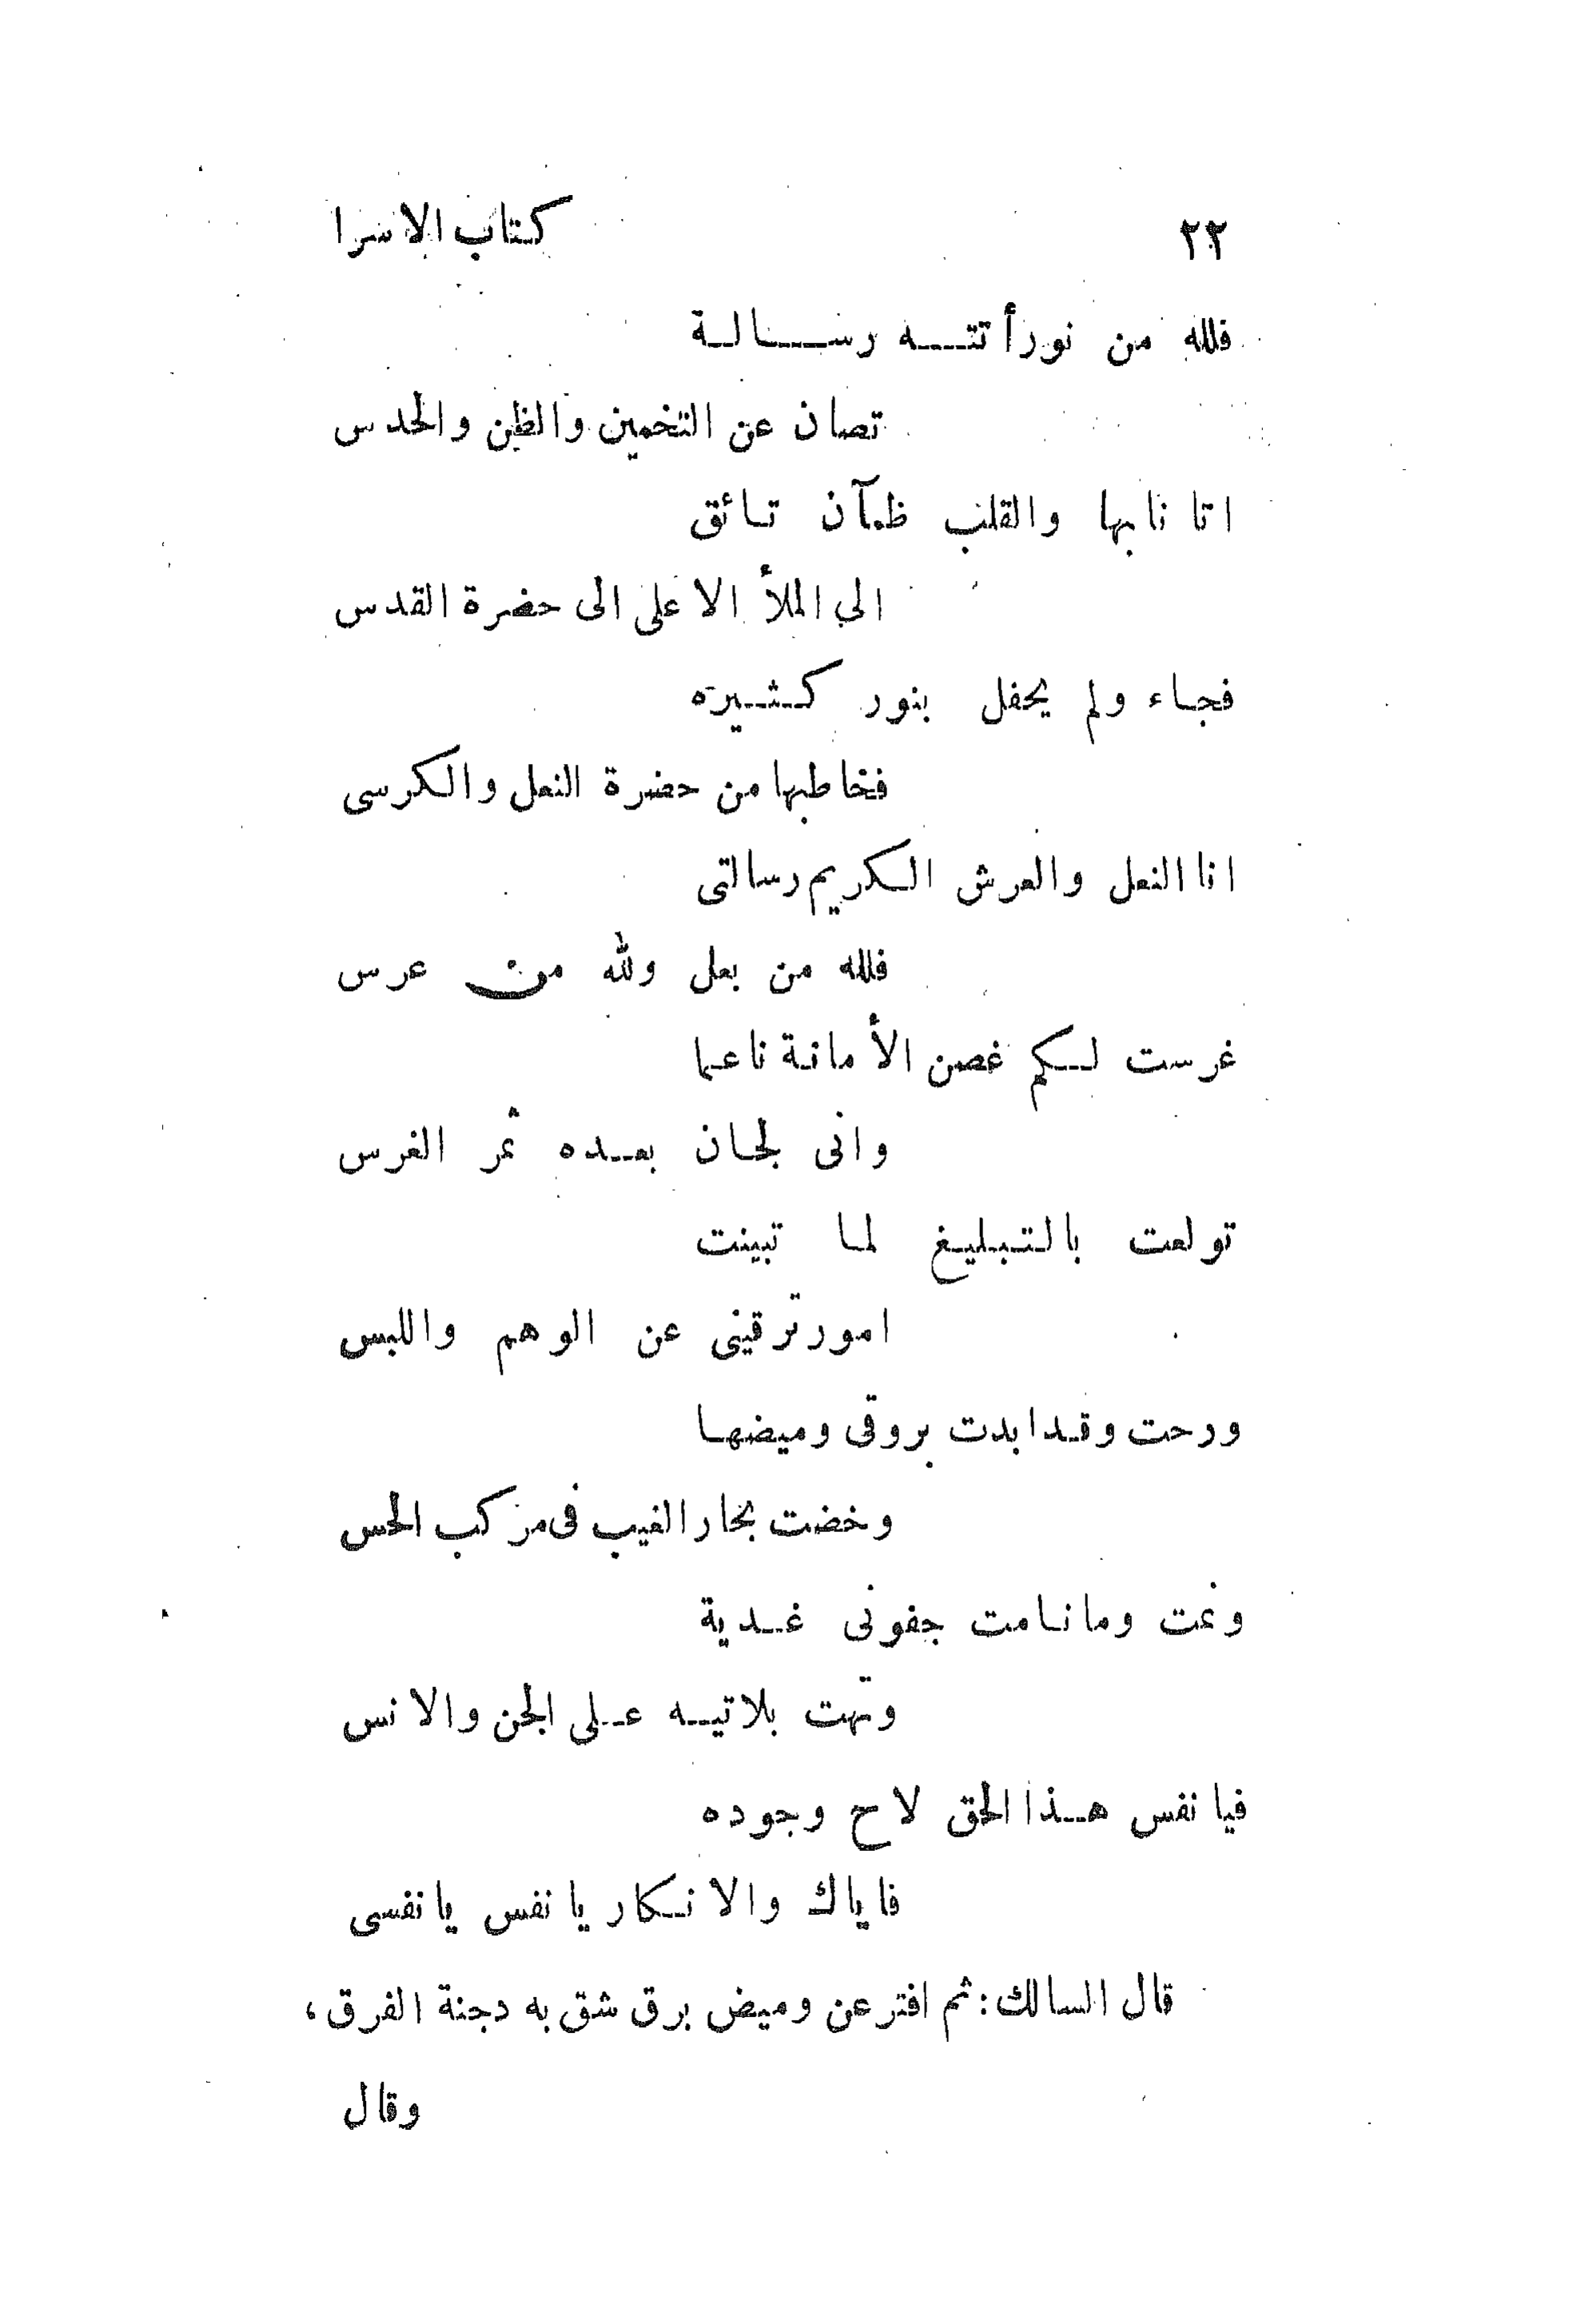 ٢٢ كتاب الاسرا
فلله من نور أتته رسالة
تصان عن التخمين والظن والحدس
اتانا بها والقلب ظمآن تائق
الى الملأ الاعلى الى حضرة القدس
فجاء ولم يحفل بنور كثيره
فخاطبها من حضرة النعل والكرسى
انا النعل والعرش الكريم رسالتى
فلله من بعل ولله من عرس
غرست لكم غصن الأمانة ناعما
وانى لجان بعده ثمر الغرس
تولعت بالتبليغ لما تبينت
امور ترقينى عن الوهم واللبس
ورحت وقد ابدت بروقى وميضها
وخضت بحار الغيب فى مركب الحس
ونمت وما نامت جفونى غدية
وتهت بلا تيه على الجن والانس
فيا نفس هذا الحق لاح وجوده
فاياك والانكار يا نفس يا نفسى
قال السالك: ثم افتر عن وميض برق شق به دجنة الفرق،
وقال